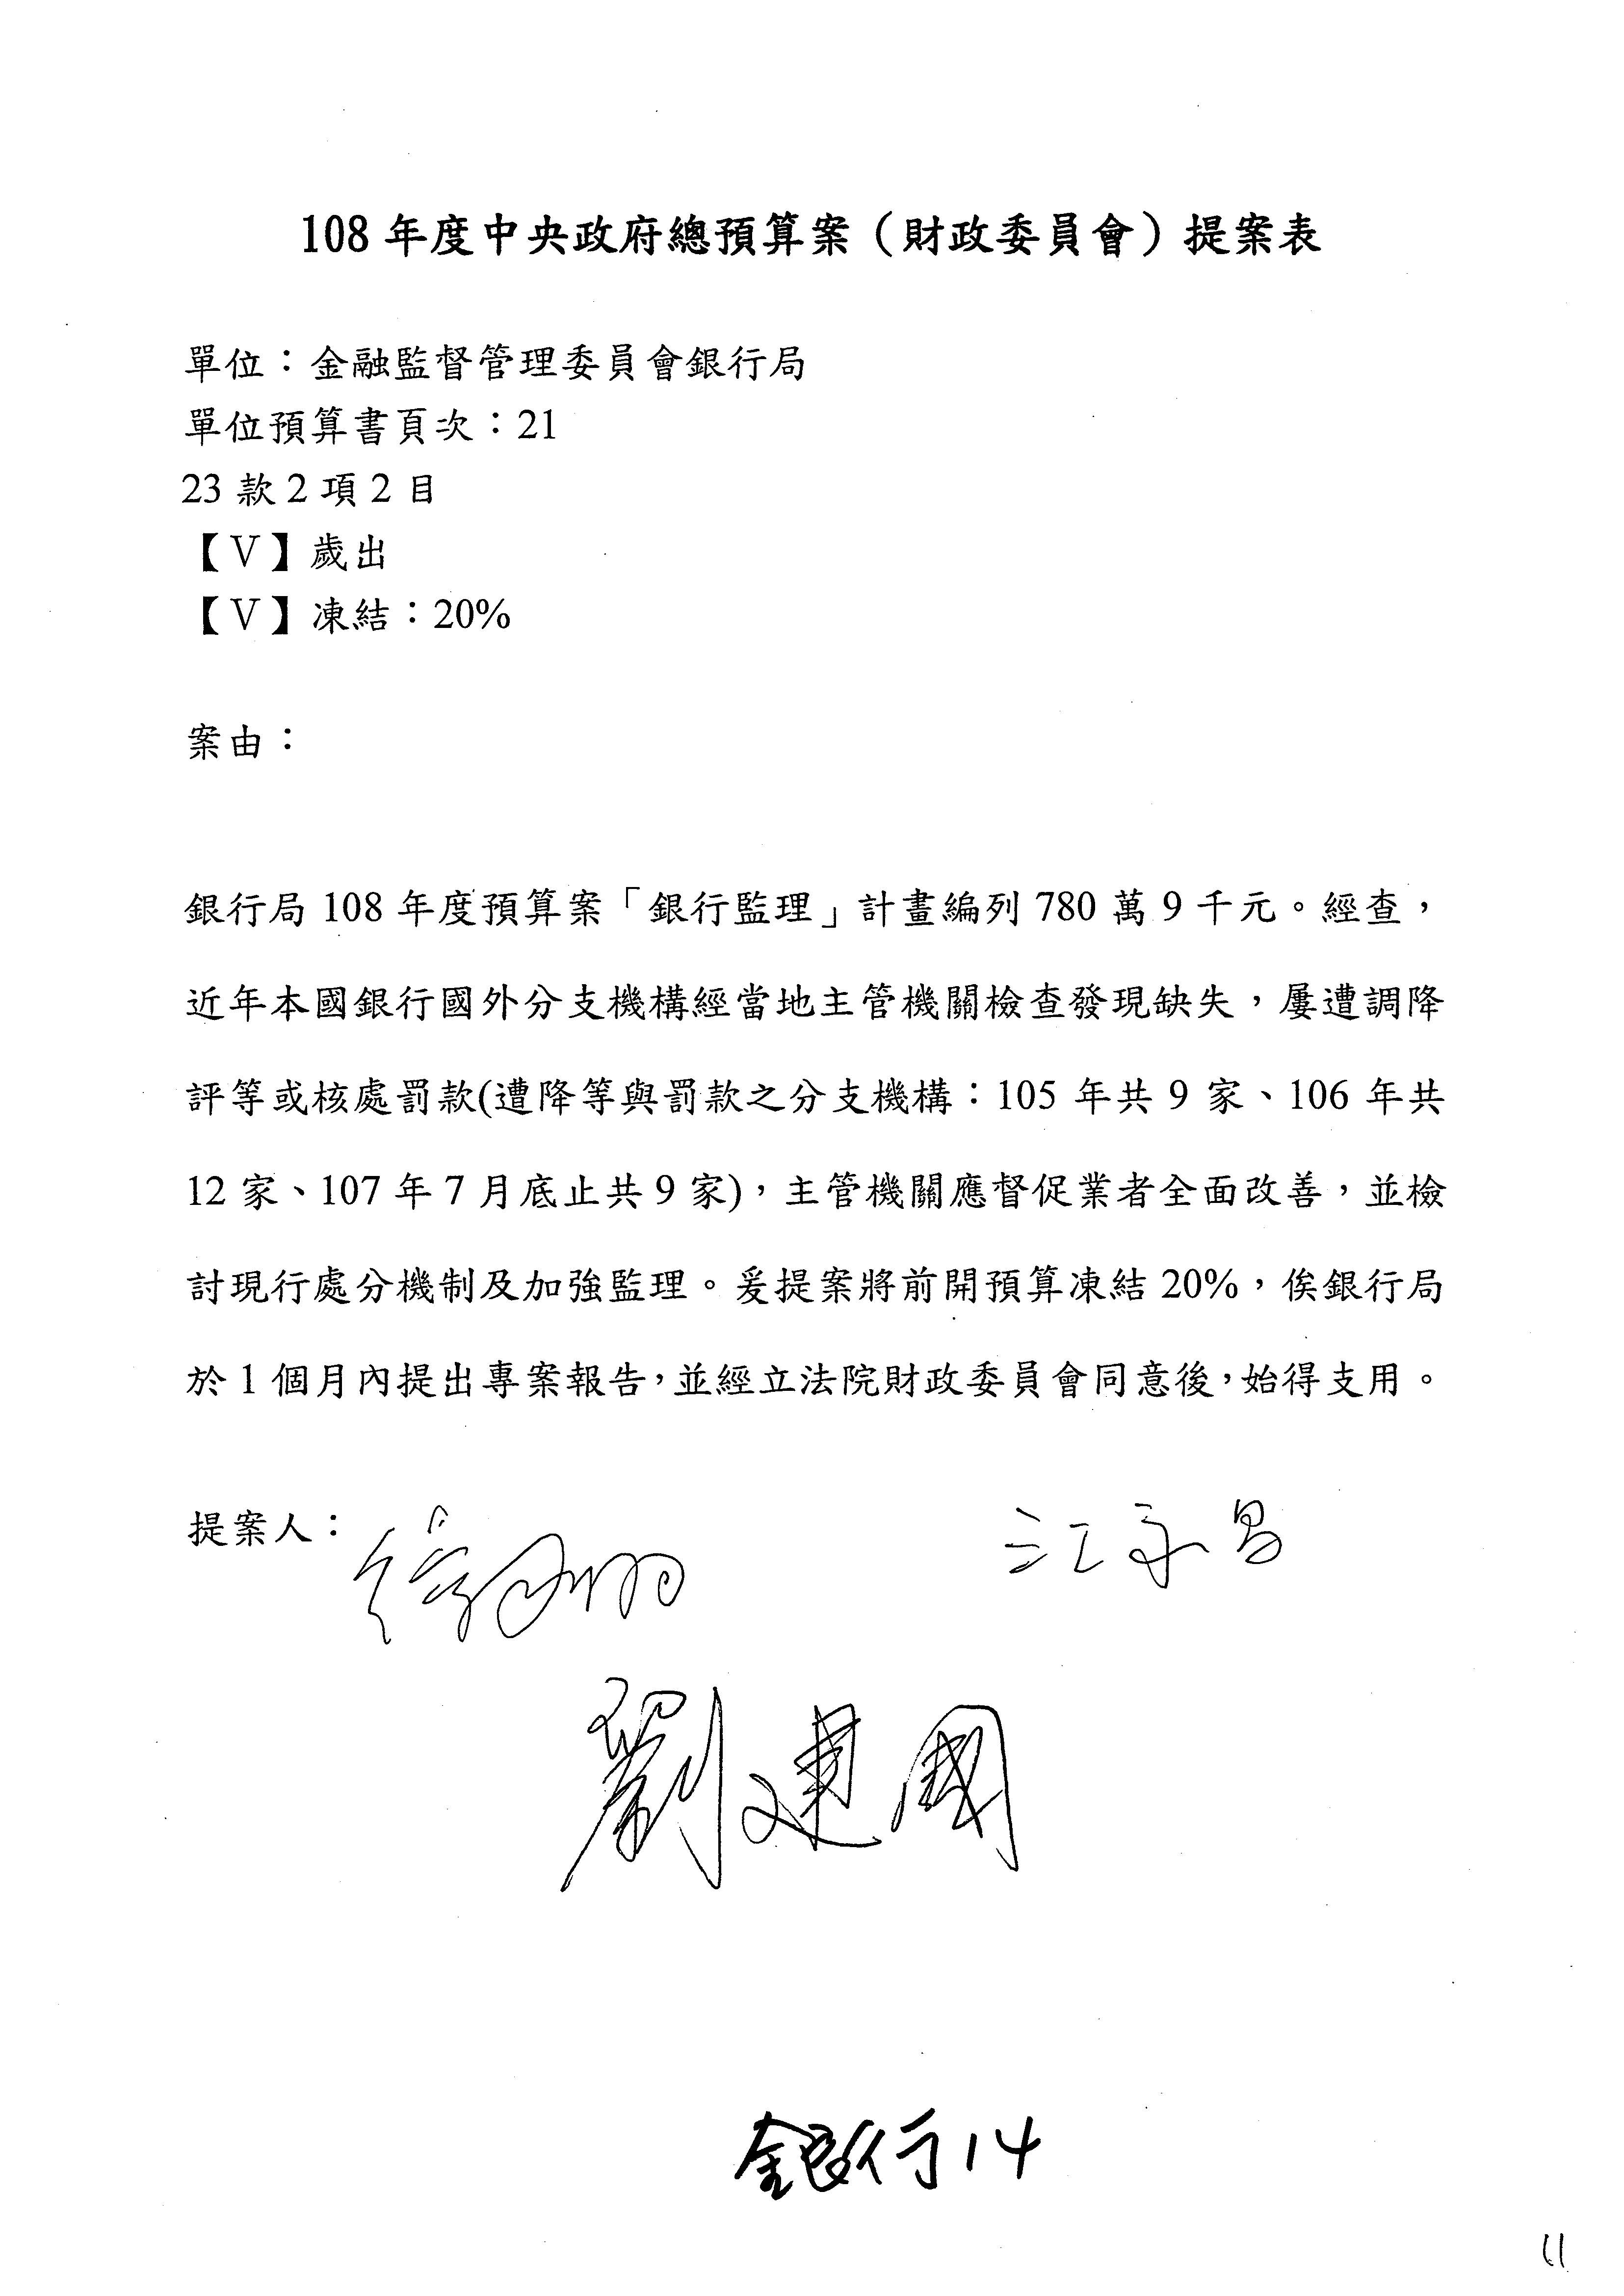 108 年度中央政府總預算案（財政委員會）提案表
單位：金融監督管理委員會銀行局
單位預算書頁次：21
23 款 2 項 2 目
【V】歲出
【V】凍結：20%
案由：
銀行局 108 年度預算案「銀行監理」計畫編列 780 萬 9 千元。經查，
近年本國銀行國外分支機構經當地主管機關檢查發現缺失，屢遭調降
評等或核處罰款(遭降等與罰款之分支機構：105 年共 9 家、106 年共
12 家、107 年 7 月底止共 9 家)，主管機關應督促業者全面改善，並檢
討現行處分機制及加強監理。爰提案將前開預算凍結 20%，俟銀行局
於 1 個月內提出專案報告，並經立法院財政委員會同意後，始得支用。
提案人：
江永昌
劉建國
銀行14
11